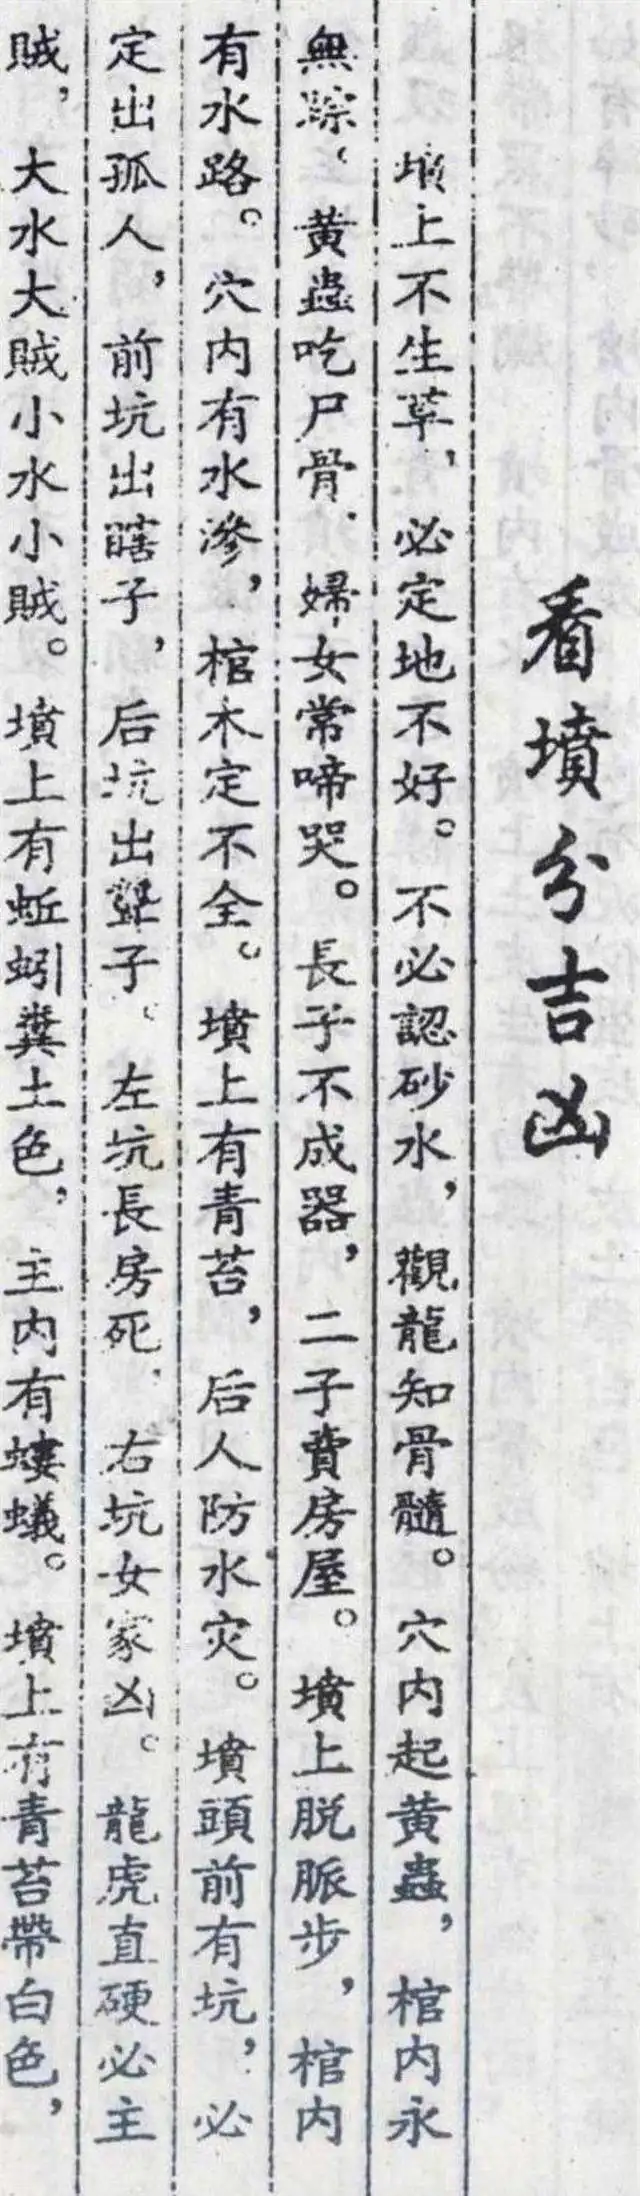 看墳分吉凶
墳上不生草，必定地不好。不必認砂水，觀龍知骨髓。穴内起黄蟲，棺内永
無踪，黄蟲吃尸骨．婦女常啼哭。長子不成器，二子費房屋。墳上脱脈步，棺内
有水路。穴内有水滲，棺木定不全。墳上有青苔，后人防水灾。墳頭前有坑，必
定出孤人，前坑出瞎子，后坑出聾子。左坑長房死，右坑女家凶。龍虎直硬必主
賊，大水大賊小水小賊。墳上有蚯蚓糞土色，主内有螻蟻。墳上有青苔帶白色，